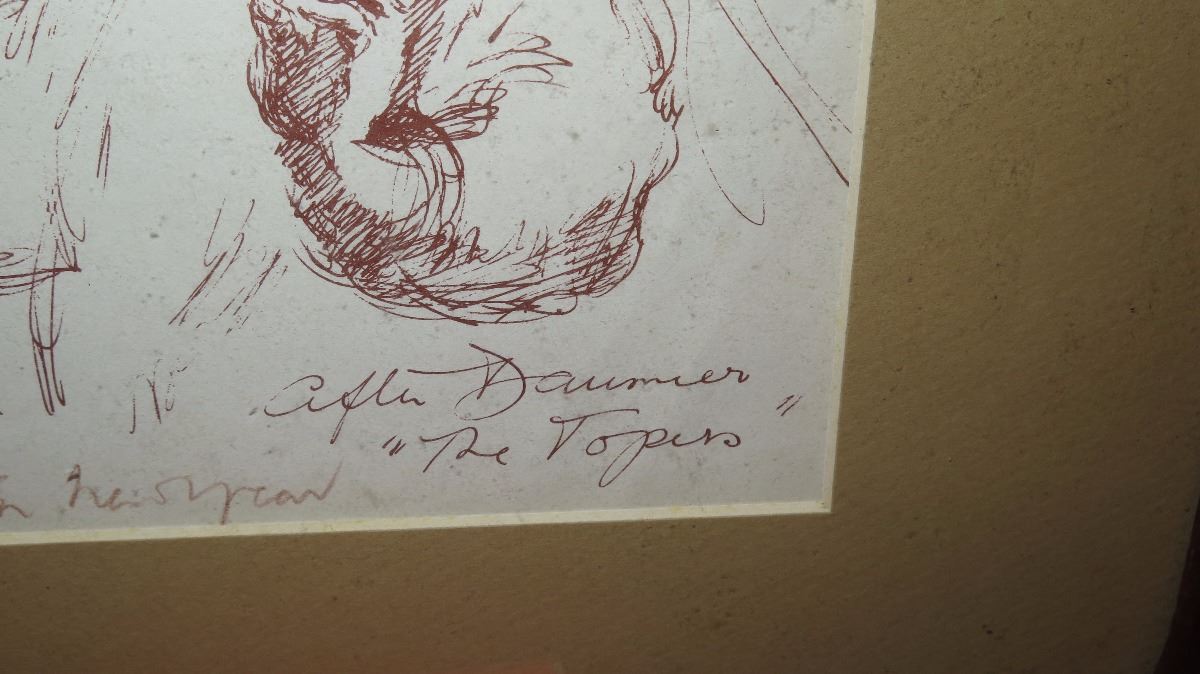 After Daumier
"The Topers"
New Year